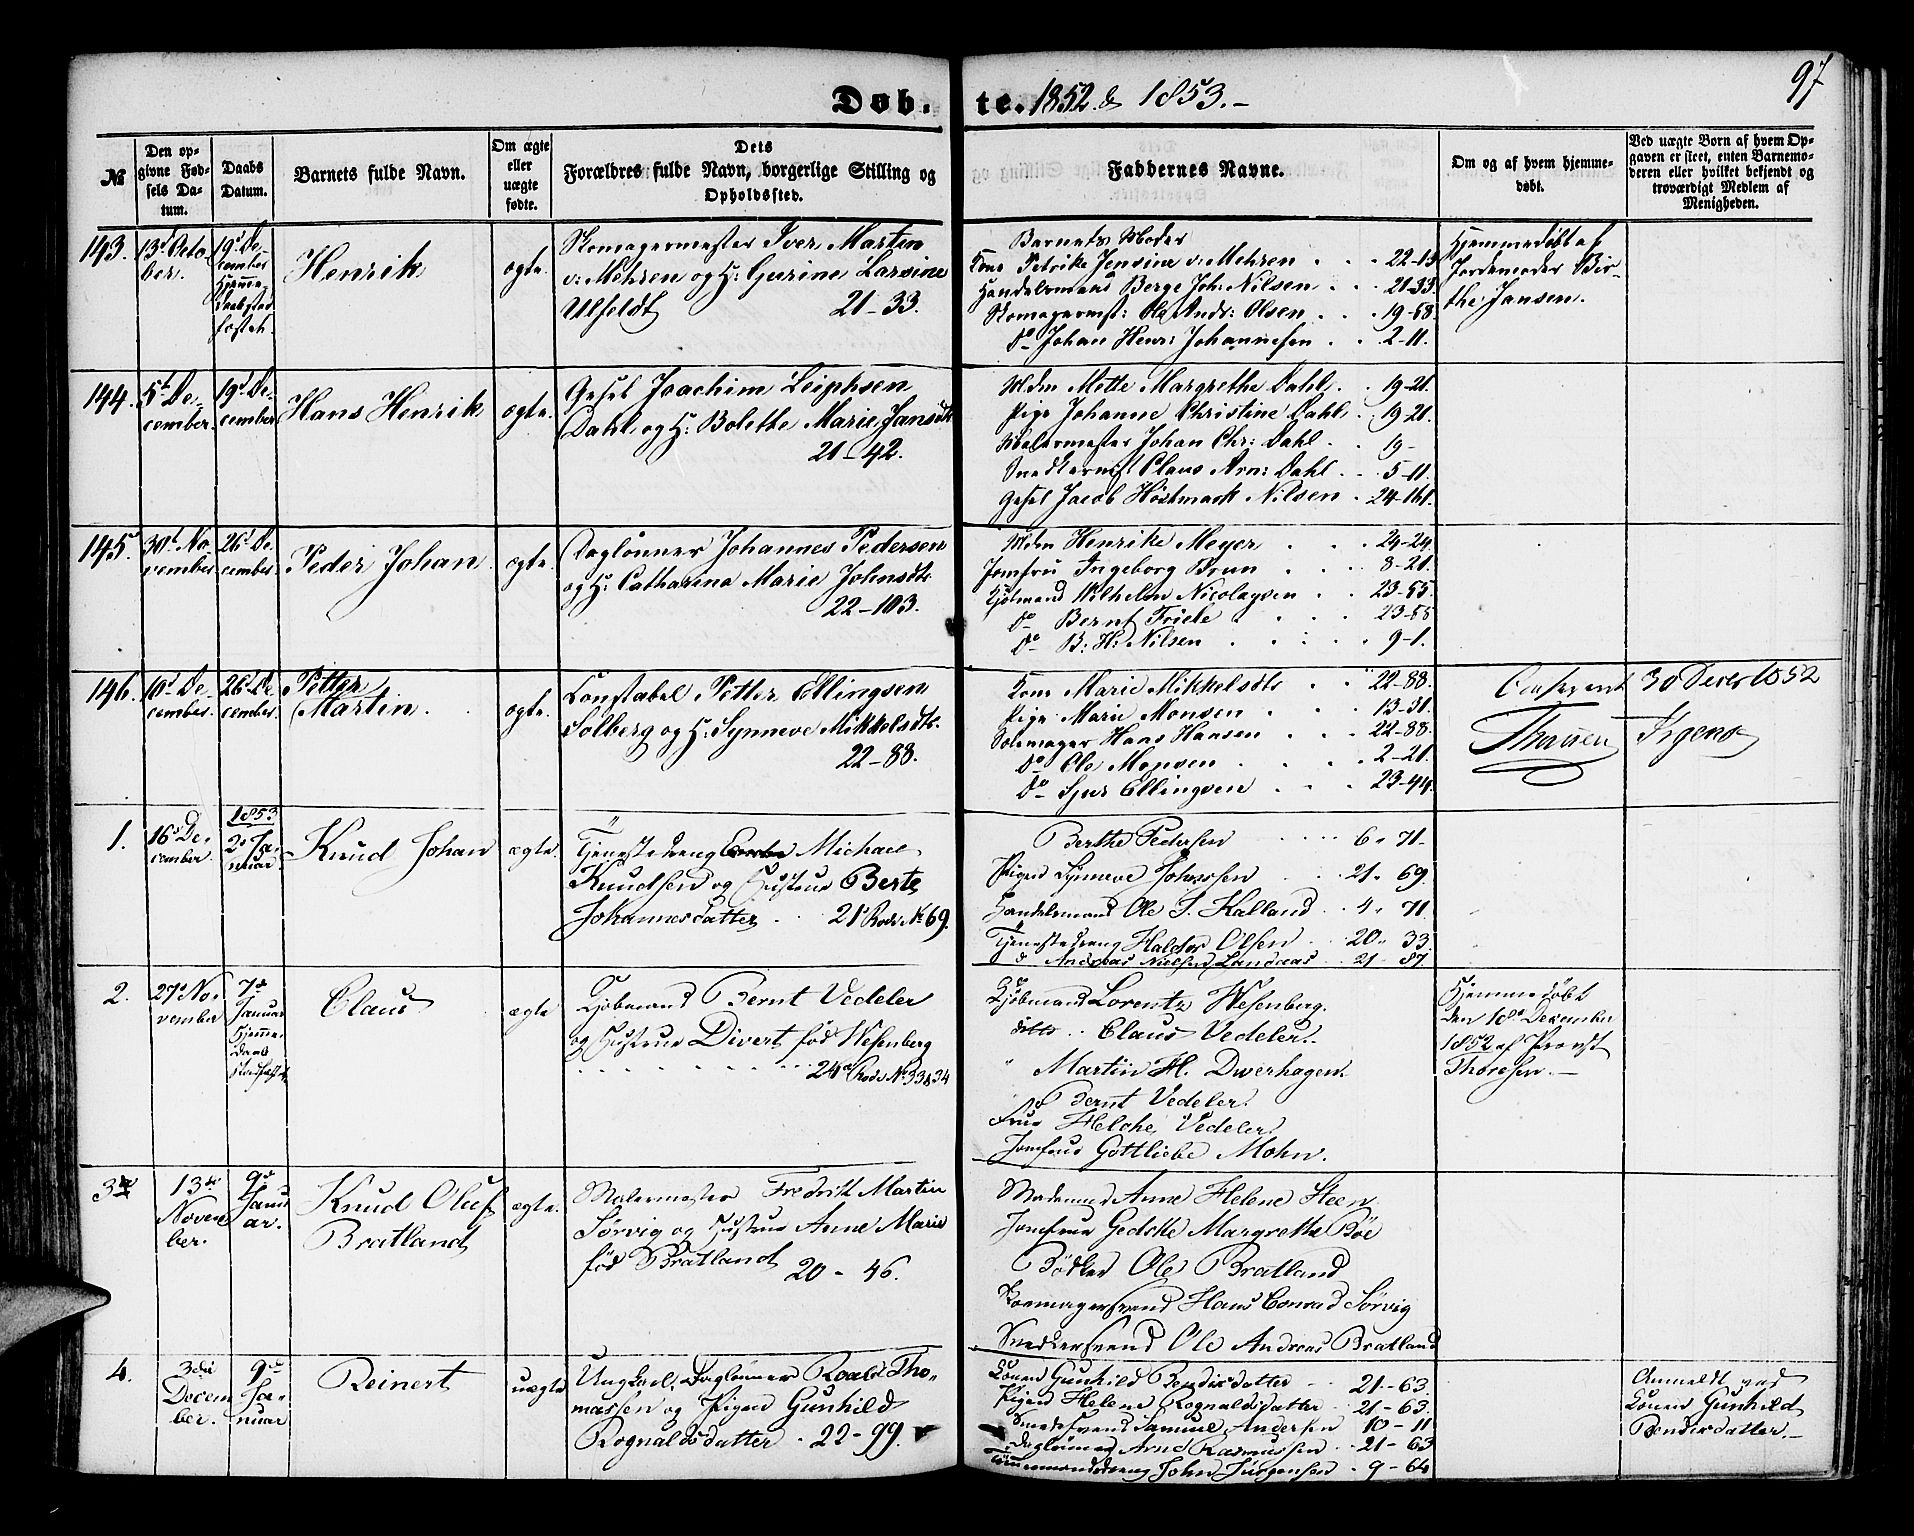 97
Døb- te. 1852 & 1853.-
№
Den op-
givne Fød-
sels Da-
tum.
Daabs
Datum.
Barnets fulde Navn.
Om ægte
eller
uægte
fødte.
Dets
Forældres fulde Navn, borgerlige Stilling og
Opholdssted.
Faddernes Navne.
Om og af hvem hjemme-
døbt.
Ved uægte Børn af hvem Op-
gaven er skeet, enten Barnemo-
deren eller hvilket bekjendt og
troværdigt Medlem af
Menigheden.
143.
13d Octo-
ber.
19d De-
cember
Hjemme-
daab stad-
fæstet.
Henrik
ægte.
Skomagermester Iver Martin
v: Mehren og H: Gurine Larsine
Ulfeldt
21-33.
Barnets Moder
Kone Petrike Jensine v: Mehren . . . 22-13
Handelsmand Berge Joh: Nilsen . . . 21-33
Skomagermst: Ole Andr: Olsen . . . 19-58.
Do Johan Henr: Johannesen . . 2-11.
Hjemmedøbt af
Jordemoder Bir-
the Jansen.
144.
5d De-
cember.
19d De-
cember
Hans Henrik
ægte.
Gesel Joachim Leiphsen
Dahl og H: Bolethe Marie Jansdt
21-42.
Mdm Mette Margrethe Dahl . . 19-21.
Pige Johanne Christine Dahl . . 19-21.
Malermester Johan Chr: Dahl . . 19-
Snedkermst Claus Arn: Dahl . . . 5-11.
Gesel Jacob Høstmark Nilsen . 24-161.
145.
30d No-
vember.
26d De-
cember.
Peder Johan
ægte.
Daglønner Johannes Pedersen
og H: Catharina Marie Johnsdt:
22-103.
Mdm Henrike Meyer . . . 24-24.
Jomfru Ingeborg Brun . . . 8-21.
Kjøbmand Wilhelm Nicolaysen . . 23-55.
Do Bernt Friele . . . 23-58
Do B: H: Nilsen . . . . 9-1.
146.
10d De-
cember.
26d De-
cember.
Petter
Martin.
ægte.
Constabel Petter Ellingsen
Solberg og H: Synneve Mikkelsdt:
22-88.
Kone Marie Mikkelsdt: . . 22-88.
Pige Marie Monsen . . . 13-31.
Skomager Haas Hansen . . . 22-88.
Do Ole Monsen . . . . 2-21.
Do Sjur Ellingsen . . . 23-44.
Conferent 30 Decer 1852
Irgens
1.
16d De-
cember.
1853
2d Ja-
nuar.
Knud Johan
ægte.
Tjenestedreng Michael
Knudsen og Hustrue Berte
Johannesdatter . . 21d Rode No 69.
Berthe Pedersen . . . . 6 . 71.
Pigen Synneve Johnssen . . . 21 . 69.
Handelsmand Ole S. Kalland . . 4 . 71.
Tjenestedreng Haldor Olsen . . 20 . 33.
do Andreas Nielsen Landaas . . 21 . 87.
2.
27d No-
vember
7d
Januar
Hjemme-
daab
stadfæstet
Claus
ægte
Kjøbmand Bernt Vedeler
og Hustrue Divert fød Wesenberg
24d Rode No 33&34
Kjøbmand Lorentz Wesenberg.
ditto . . Claus Vedeler.
" Martin H. Dwerhagen.
" Bernt Vedeler.
Frue Helche Vedeler.
Jomfrue Gottliebe Mohn.
Hjemmedøbt
den 18d December
1852 af Provst
Thoresen.-
3.
13de
Novem-
ber.
9d
Janu-
ar.
Knud Oluf
Bratland
ægte.
Malermester Fredrik Martin
Sørvig og Hustrue Anne Marie
fød Bratland
20-46.
Madamme Anne Helene Steen
Jomfrue Gedske Margrethe Bøe
Bødker Ole Bratland
Skomagersvend Hans Conrad Sørvig
Snedkersvend Ole Andreas Bratland
4.
3die
Decem-
ber.
9d
Ja-
nuar
Reinert
uægte
Ungkarl, Daglønner Roald Tho-
massen og Pigen Gunhild
Rognaldsdatter . 22-99.
Konen Gunhild Bendixdatter . . 21-63.
Pigen Helene Rognaldsdatter . . 21-63.
Smedesvend Samuel Andersen . 10-11
Daglønner Arne Rasmussen . . 21-63
Tømmermandsdreng John Jürgensen . 9-64
Anmeldt ved
Konen Gunhild
Bendixdatter.-